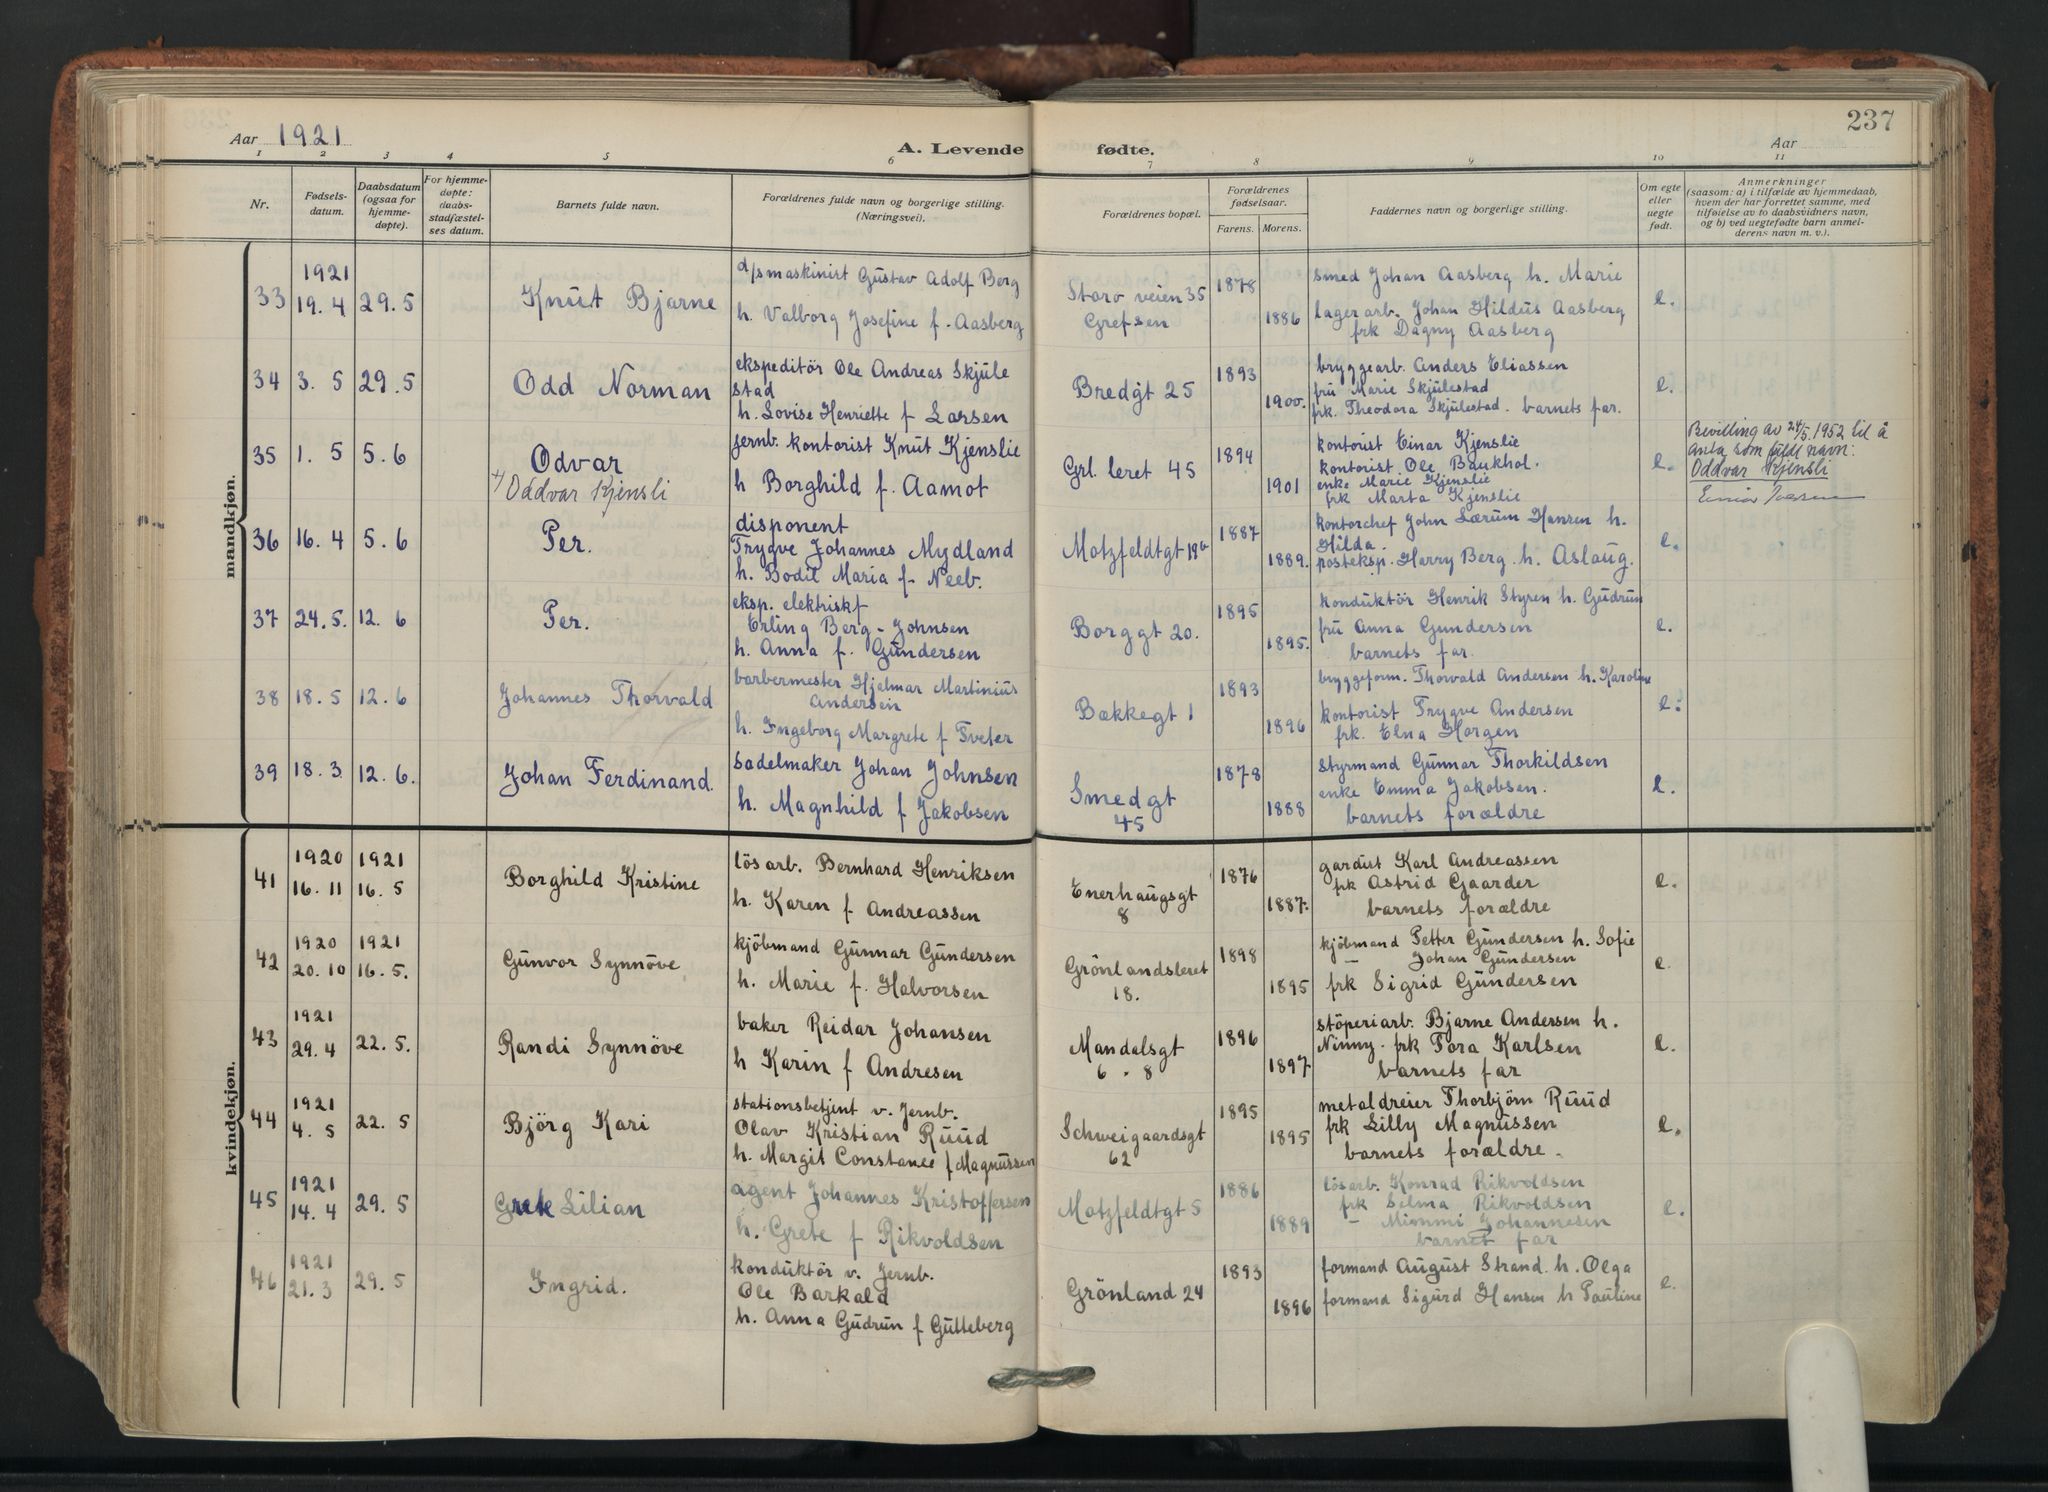 237
Aar 1921
A. Levende fødte.
Aar
1 2 3 4 5 6 7 8 9 10 11
Nr.
Fødsels-
datum.
Daabsdatum
(ogsaa for
hjemme-
døpte).
For hjemme-
døpte:
daabs-
stadfæstel-
ses datum.
Barnets fulde navn.
Forældrenes fulde navn og borgerlige stilling.
(Næringsvei).
Forældrenes bopæl.
Forældrenes
fødselsaar.
Farens. Morens.
Faddernes navn og borgerlige stilling.
Om egte
eller
uegte
født.
Anmerkninger
(saasom: a) i tilfælde av hjemmedaab,
hvem der har forrettet samme, med
tilføielse av to daabsvidners navn,
og b) ved uegtefødte barn anmel-
derens navn m. v.).
mandkjøn.
33 1921 19. 4 29. 5 Knut Bjarne
d/s maskinist Gustav Adolf Berg
h. Valborg Josefine f. Aasberg
Storo veien 35
Grefsen
1878 1886
smed Johan Aasberg h. Marie
lagerarb. Johan Hildus Aasberg
frk Dagny Aasberg
e.
34 3. 5 29. 5 Odd Norman
ekspeditör Ole Andreas Skjule
stad
h. Lovise Henriette f Larsen
Bredgt 25
1893 1900.
bryggearb. Anders Eliassen
fru Marie Skjulestad
frk. Theodora Skjulestad. barnets far.
e.
35 1. 5 5. 6 Odvar
+) Oddvar Kjensli
jernb. kontorist Knut Kjenslie
h Borghild f. Aamot
Grl. leret 45
1894 1901
kontorist Einar Kjenslie
kontorist Ole Baukhol.
enke Marie Kjenslie
frk Marta Kjenslie
e.
Bevilling av 24/5.1952 til å
anta som fullt navn:
Oddvar Kjensli
36 16. 4 5. 6 Per.
disponent
Trygve Johannes Mydland
h. Bodil Maria f. Neeb.
Motzfeldtgt 19b
1887 1889.
kontorchef John Lærum Hansen h.
Hilda.
posteksp. Harry Berg h. Aslaug.
e.
37 24. 5. 12. 6 Per.
eksp. elektriskf
Erling Berg-Johnsen
h. Anna f. Gundersen
Borggt 20.
1895 1895.
konduktör Henrik Styren h. Gudrun
fru Anna Gundersen
barnets far.
e.
38 18. 5 12. 6 Johannes Thorvald
barbermester Hjalmar Martinius
Andersen
h. Ingeborg Margrete f Tveter
Bakkegt 1
1893 1896
bryggeform. Thorvald Andersen h. Karoline
kontorist Trygve Andersen
frk. Elna Horgen
e.
39 18. 3 12. 6. Johan Ferdinand.
sadelmaker Johan Johnsen
h. Magnhild f Jakobsen
Smedgt
45
1878 1888
styrmand Gunnar Thorkildsen
enke Emma Jakobsen.
barnets forældre
e.
kvindekjøn.
41 1920 16. 11 1921 16. 5 Borghild Kristine
lösarb. Bernhard Henriksen
h. Karen f Andreassen
Enerhaugsgt
8
1876 1887.
gardist Karl Andreassen
frk Astrid Gaarder
barnets forældre
e.
42 1920 20. 10 1921 16. 5. Gunvor Synnöve
kjöbmand Gunnar Gundersen
h. Marie f. Halvorsen
Grönlandsleret
18.
1898 1895
kjöbmand Petter Gundersen h. Sofie
— Johan Gundersen
frk Sigrid Gundersen
e.
43 1921 29. 4 22. 5. Randi Synnöve
baker Reidar Johansen
h Karin f Andresen
Mandalsgt
6 - 8
1896 1897
stöperiarb. Bjarne Andersen h.
Ninny. frk Tora Karlsen
barnets far
e.
44 1921 4. 5 22. 5 Björg Kari
stationsbetjent v. Jernb.
Olav Kristian Ruud
h. Margit Constance f Magnussen
Schweigaardsgt
62
1895 1895
metaldreier Thorbjörn Ruud
frk Lilly Magnussen
barnets forældre.
e.
45 1921 14. 4 29. 5 Grete Lilian
agent Johannes Kristoffersen
h. Grete f Rikvoldsen
Motzfeldtgt 5
1886 1889
lösarb. Konrad Rikvoldsen
frk Selma Rikvoldsen
— Mimmi Johannesen
barnet far
e.
46 1921 21. 3 29. 5 Ingrid.
konduktör v. Jernb.
Ole Barkald
h. Anna Gudrun f Gulleberg
Grönland 24
1893 1896
formand August Strand h. Olga
formand Sigurd Hansen h Pauline
e.